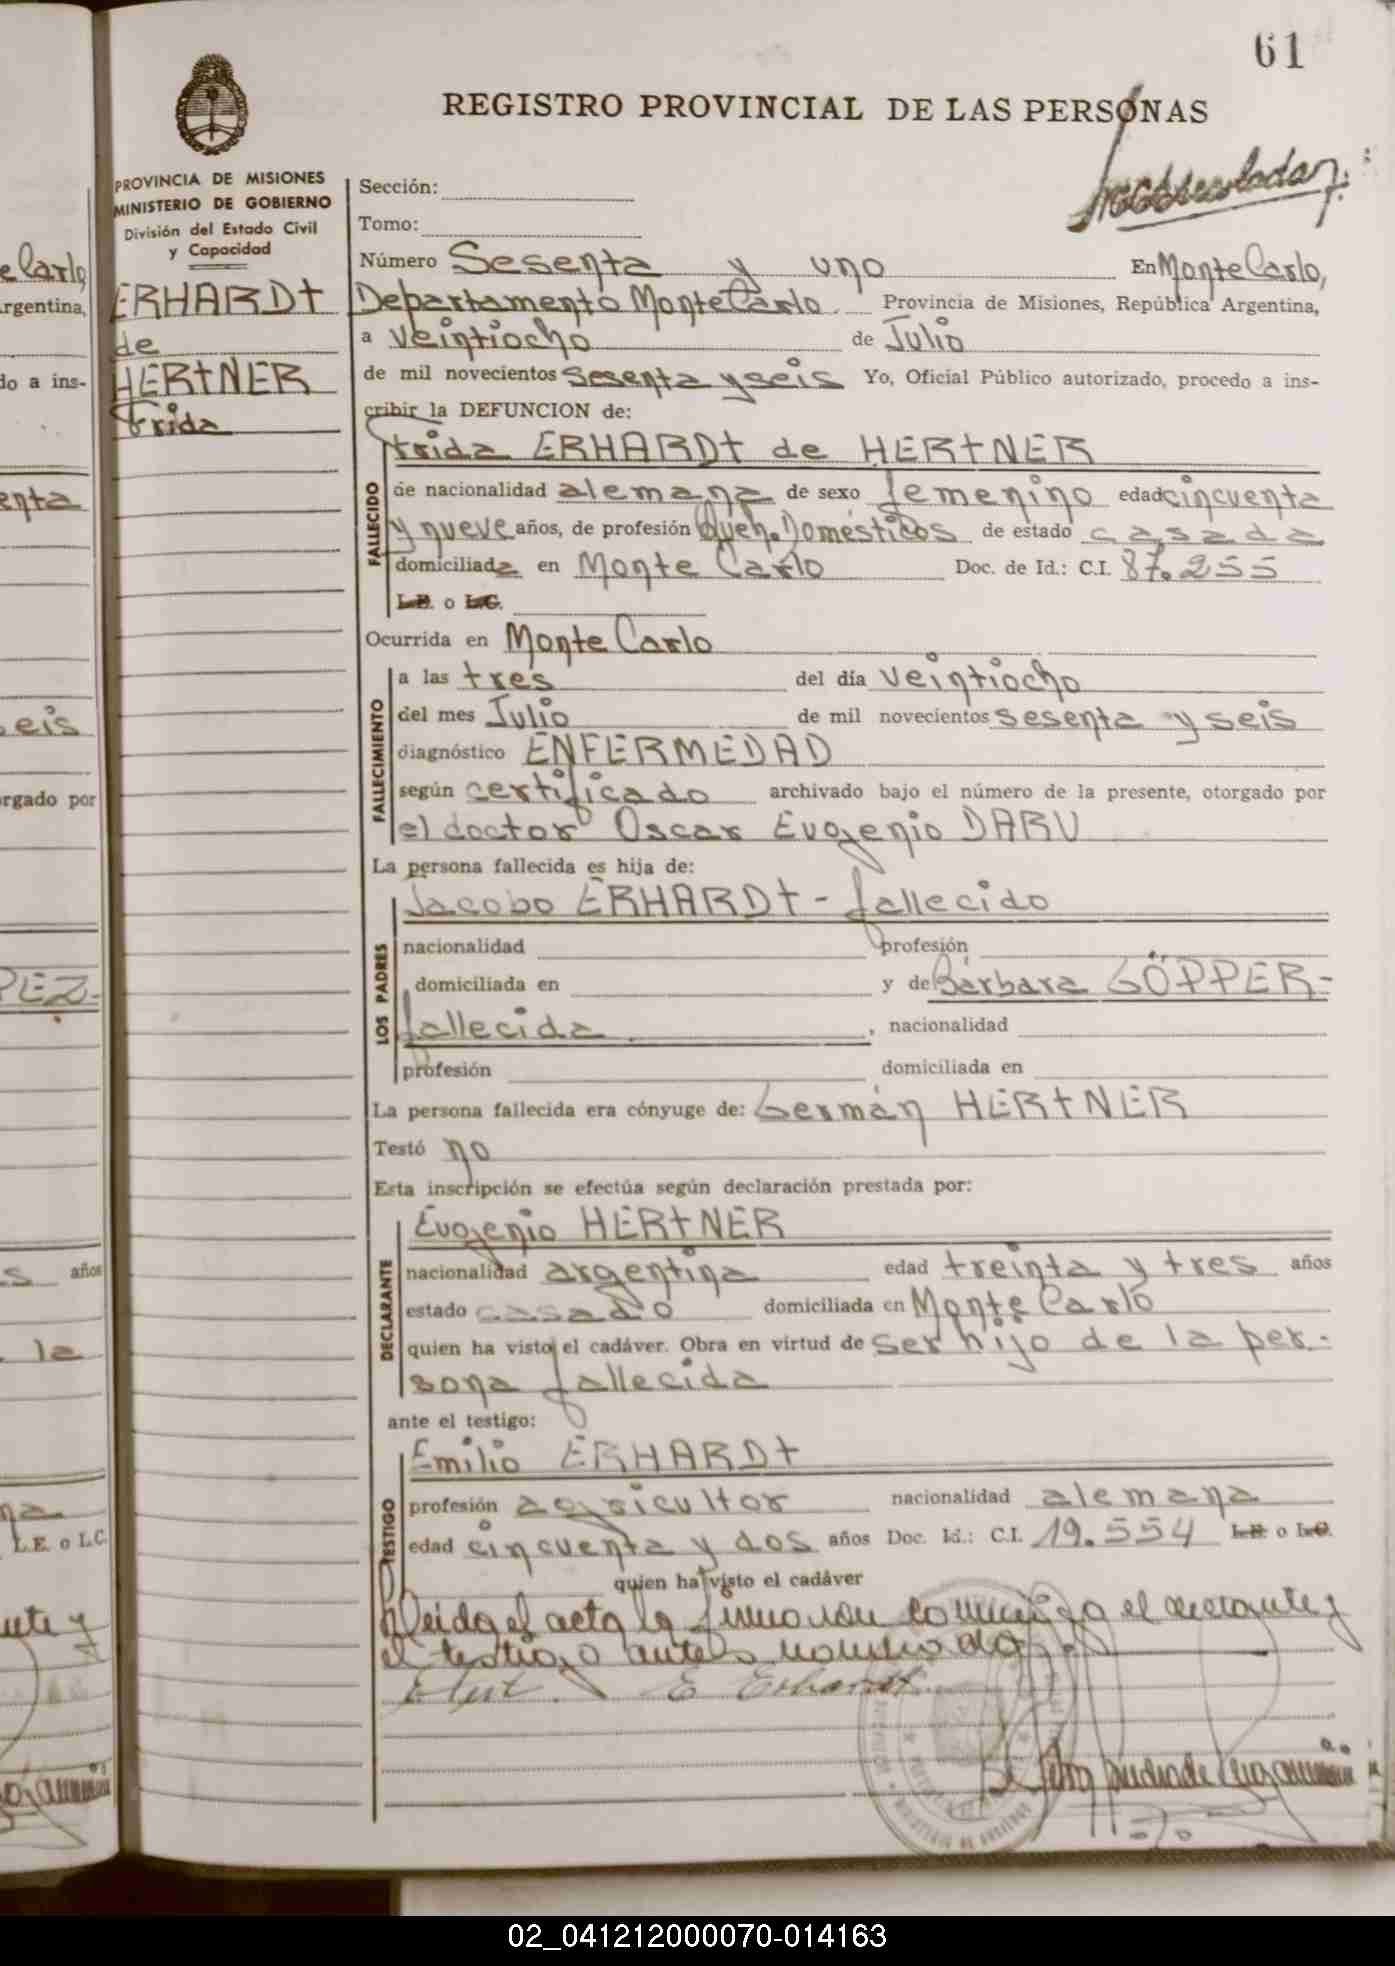 61
REGISTRO PROVINCIAL DE LAS PERSONAS
PROVINCIA DE MISIONES
MINISTERIO DE GOBIERNO
División del Estado Civil
y Capacidad
ERHARDt
de
HERtNER
Frida
Sección:
Tomo:
Número Sesenta y uno En Monte Carlo,
Departamento Monte Carlo Provincia de Misiones, República Argentina,
a veintiocho de Julio
de mil novecientos sesenta y seis Yo, Oficial Público autorizado, procedo a ins-
cribir la DEFUNCION de:
Frida ERHARDt de HERtNER
FALLECIDO
de nacionalidad alemana de sexo femenino edad cincuenta
y nueve años, de profesión Queh. Domésticos de estado casada
domiciliada en Monte Carlo Doc. de Id.: C.I. 87.255
L.E. o L.C.
Ocurrida en Monte Carlo
FALLECIMIENTO
a las tres del día veintiocho
del mes Julio de mil novecientos sesenta y seis
diagnóstico ENFERMEDAD
según certificado archivado bajo el número de la presente, otorgado por
el doctor Oscar Eugenio DARU
La persona fallecida es hija de:
LOS PADRES
Jacobo ERHARDt - fallecido
nacionalidad profesión
domiciliada en y de Bárbara GÖPPER-
fallecida , nacionalidad
profesión domiciliada en
La persona fallecida era cónyuge de: Germán HERtNER
Testó no
Esta inscripción se efectúa según declaración prestada por:
DECLARANTE
Eugenio HERtNER
nacionalidad argentina edad treinta y tres años
estado casado domiciliada en Monte Carlo
quien ha visto el cadáver. Obra en virtud de ser hijo de la per-
sona fallecida
ante el testigo:
TESTIGO
Emilio ERHARDt
profesión agricultor nacionalidad alemana
edad cincuenta y dos años Doc. Id.: C.I. 19.554 L.E. o L.C.
quien ha visto el cadáver
Leida el acta la firmaron conmigo el declarante y
el testigo antes nombrado
E Erhardt
MINISTERIO DE GOBIERNO
e Carlo,
rgentina,
do a ins-
enta
eis
rgado por
PEZ-
s años
la
na
L.E. o L.C.
02_041212000070-014163